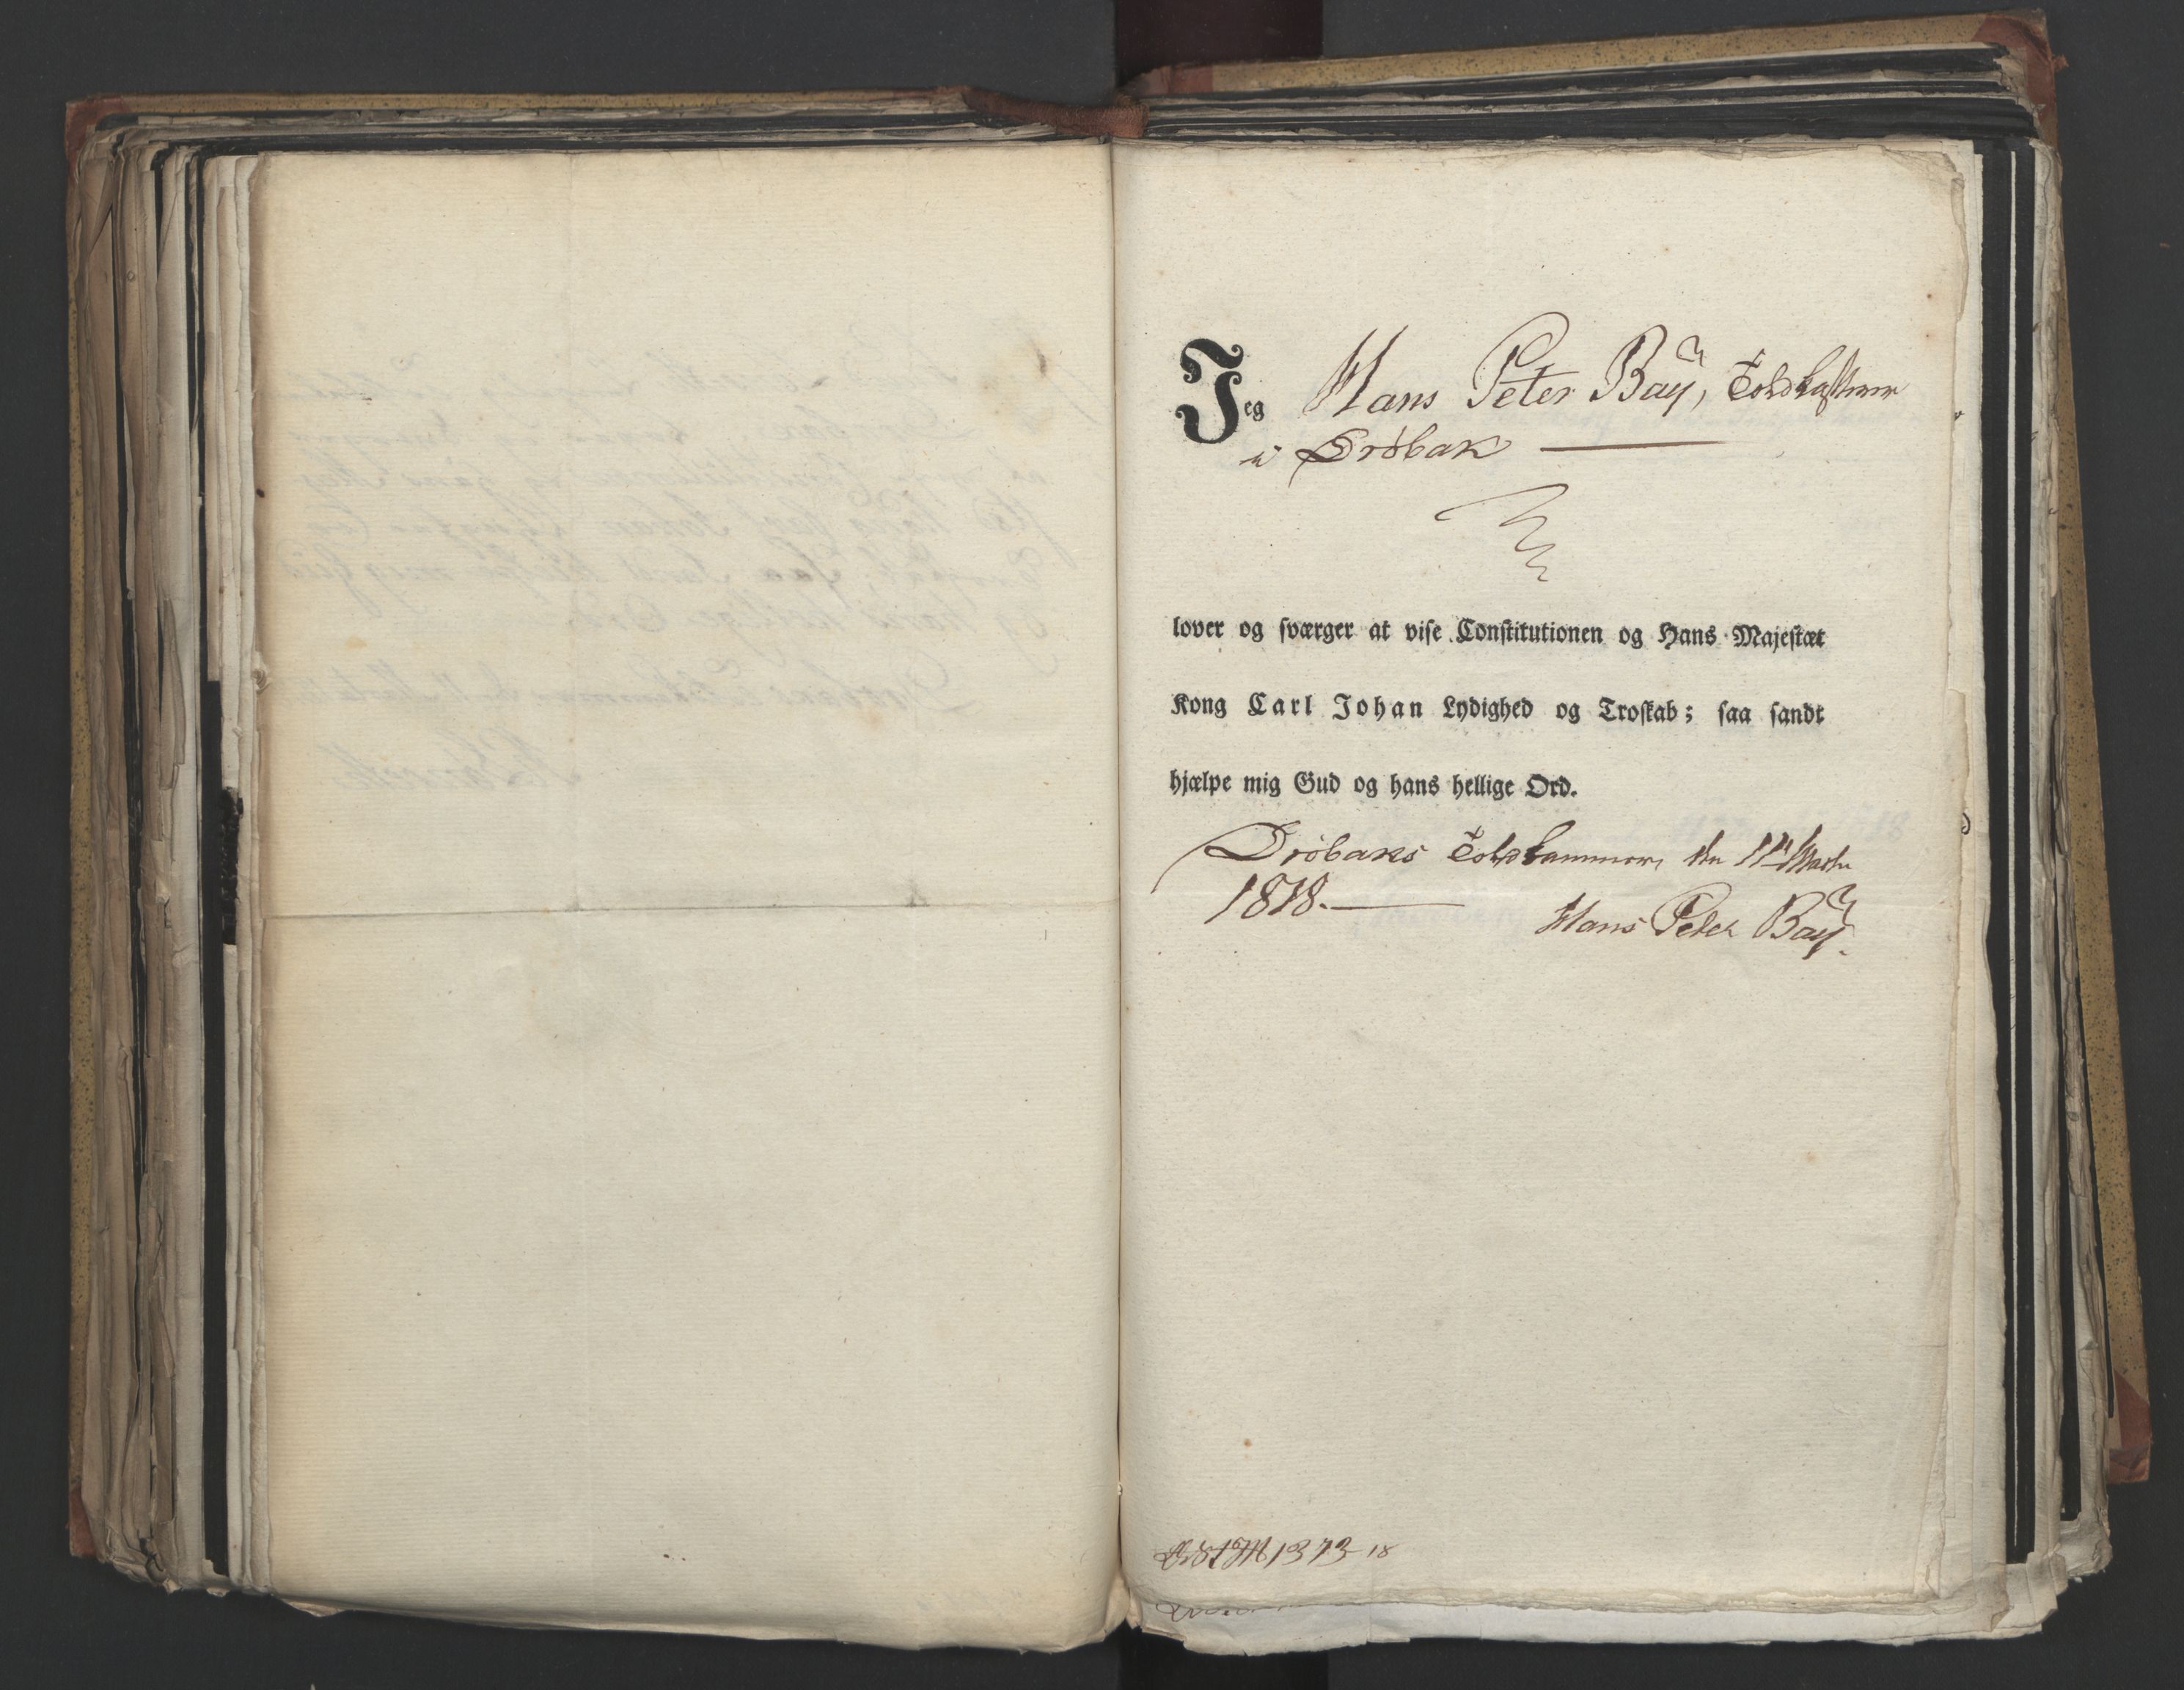 Jeg Hans Peter Baÿ, Toldkasserer
i Drøbak
lover og sværger at vise Constitutionen og Hans Majestæt
Kong Carl Johan Lydighed og Troskab; saa sandt
hjælpe mig Gud og hans hellige Ord.
Drøbaks Toldkammer, den 11te Marts
1818.
Hans Peter Baÿ.
1373 18